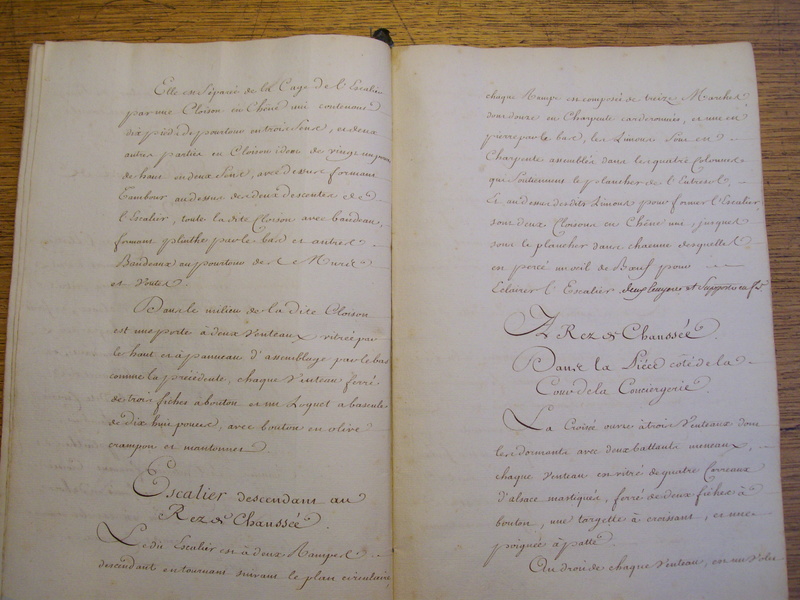 Elle est séparée de la Cage de l'Escalier
par une Cloison en Chêne uni contenant
dix pieds de pourtour en trois sens, et deux
autres parties en Cloison idem de vingt un pouces
de haut en deux sens, avec dessus formant
Tambour au dessus des deux descentes de
l'Escalier, toute la dite Cloison avec bandeau,
formant plinthe par le bas et autres
Bandeaux au pourtour des Murs
et Voutes.
Dans le milieu de la dite Cloison
est une porte à deux Venteaux vitrée par
le haut et à panneau d'assemblage par le bas
comme la précédente, chaque Venteau ferré
de trois fiches à bouton et un Loquet à bascule
de dix huit pouces, avec bouton en olive
crampon et mantonnet.
Escalier descendant au
Rez de Chaussée.
Le dit Escalier est à deux Rampes
descendant en tournant suivant le plan circulaire,
chaque Rampe est composée de treize Marches
dont douze en Charpente carderonnées, et une en
pierre par le bas, les Limons sont en
Charpente assemblés dans les quatre Colonnes
qui soutiennent le plancher de l'Entresol.
Et au dessus desdits Limons pour fermer l'Escalier,
sont deux Cloisons en Chêne uni, jusques
sous le plancher dans chacune desquelles
est percé un œil de Bœuf pour
Eclairer l'Escalier et Supports en
A Rez de Chaussée.
Dans la Pièce côté de la
Cour de la Conciergerie.
La Croisée ouvre à trois Venteaux dont
les dormants avec deux battants meneaux,
chaque Venteau est vitré de quatre Carreaux
d'alsace mastiqués, ferré de deux fiches à
bouton, une targette à croissant, et une
poignée à patte.
Au droit de chaque Venteau, est un Volet